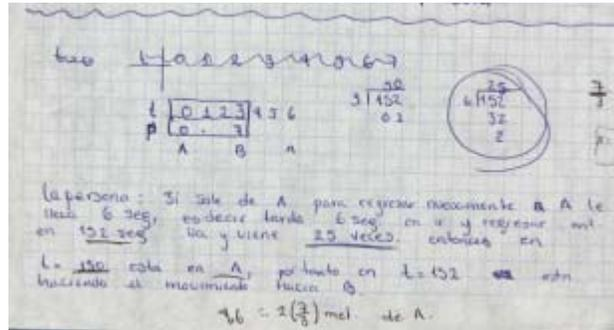 t 0 1 2 3 4 5 6
p 0 . 7
A B n
50
3 152
02
25
6 152
32
2
7
3
la persona: Si sale de A para regresar nuevamente a A le
lleva 6 seg, es decir tarda 6 seg en ir y regresar
en 152 seg va y viene 25 veces, entonces en
t= 150 esta en A, por tanto en t=152 esta
haciendo el movimiento hacia B.
= 2(7/3) met de A.